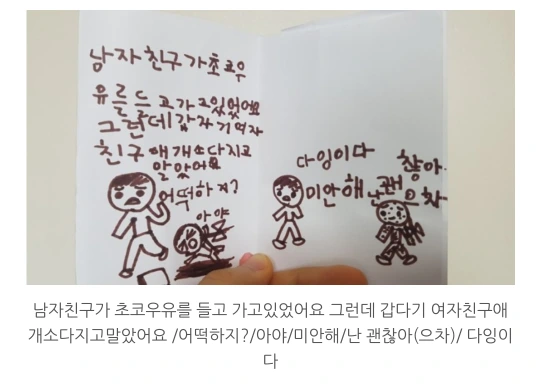 남자친구가초코우
유를들고가고있었어요
그런데갑자기여자
친구애개소다지고
말았어요
어떡하지?
아얏
다잉이다
미안해
난괜찮아
으차
남자친구가 초코우유를 들고 가고있었어요 그런데 갑다기 여자친구애
개소다지고말았어요 /어떡하지?/아야/미안해/난 괜찮아(으차)/ 다잉이
다